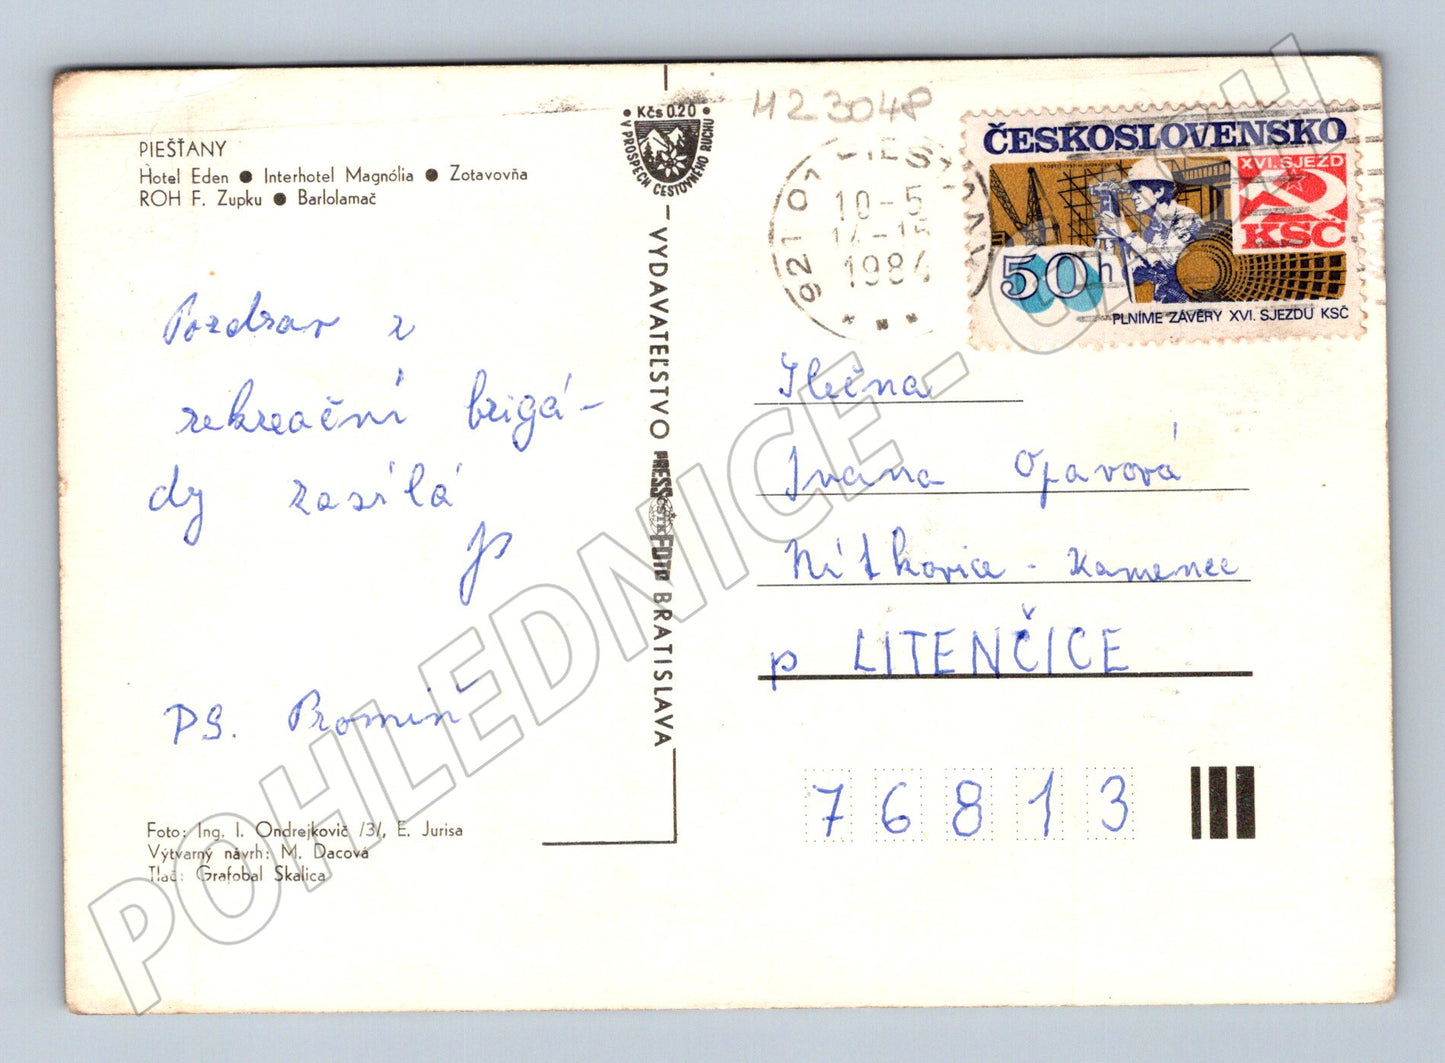 PIEŠŤANY
Hotel Eden ● Interhotel Magnólia ● Zotavovňa
ROH F. Zupku ● Barlolamač
Pozdrav z
rekreační brigá-
dy zasílá
PS. Promiň
Foto: Ing. I. Ondrejkovič /3/, E. Jurisa
Výtvarný návrh: M. Dacová
Tlač: Grafobal Skalica
Kčs 0.20
V PROSPECH CESTOVNÉHO RUCHU
VYDAVATEĽSTVO PRESSFOTO BRATISLAVA
M23048
921 01 PIEŠŤANY
10-5
14-15
1984
ČESKOSLOVENSKO
XVI. SJEZD
KSČ
50h
PLNÍME ZÁVĚRY XVI. SJEZDU KSČ
Slečna
Ivana Opavová
Nítkovice - Kamenec
p LITENČICE
76813
POHLEDNICE - CASH